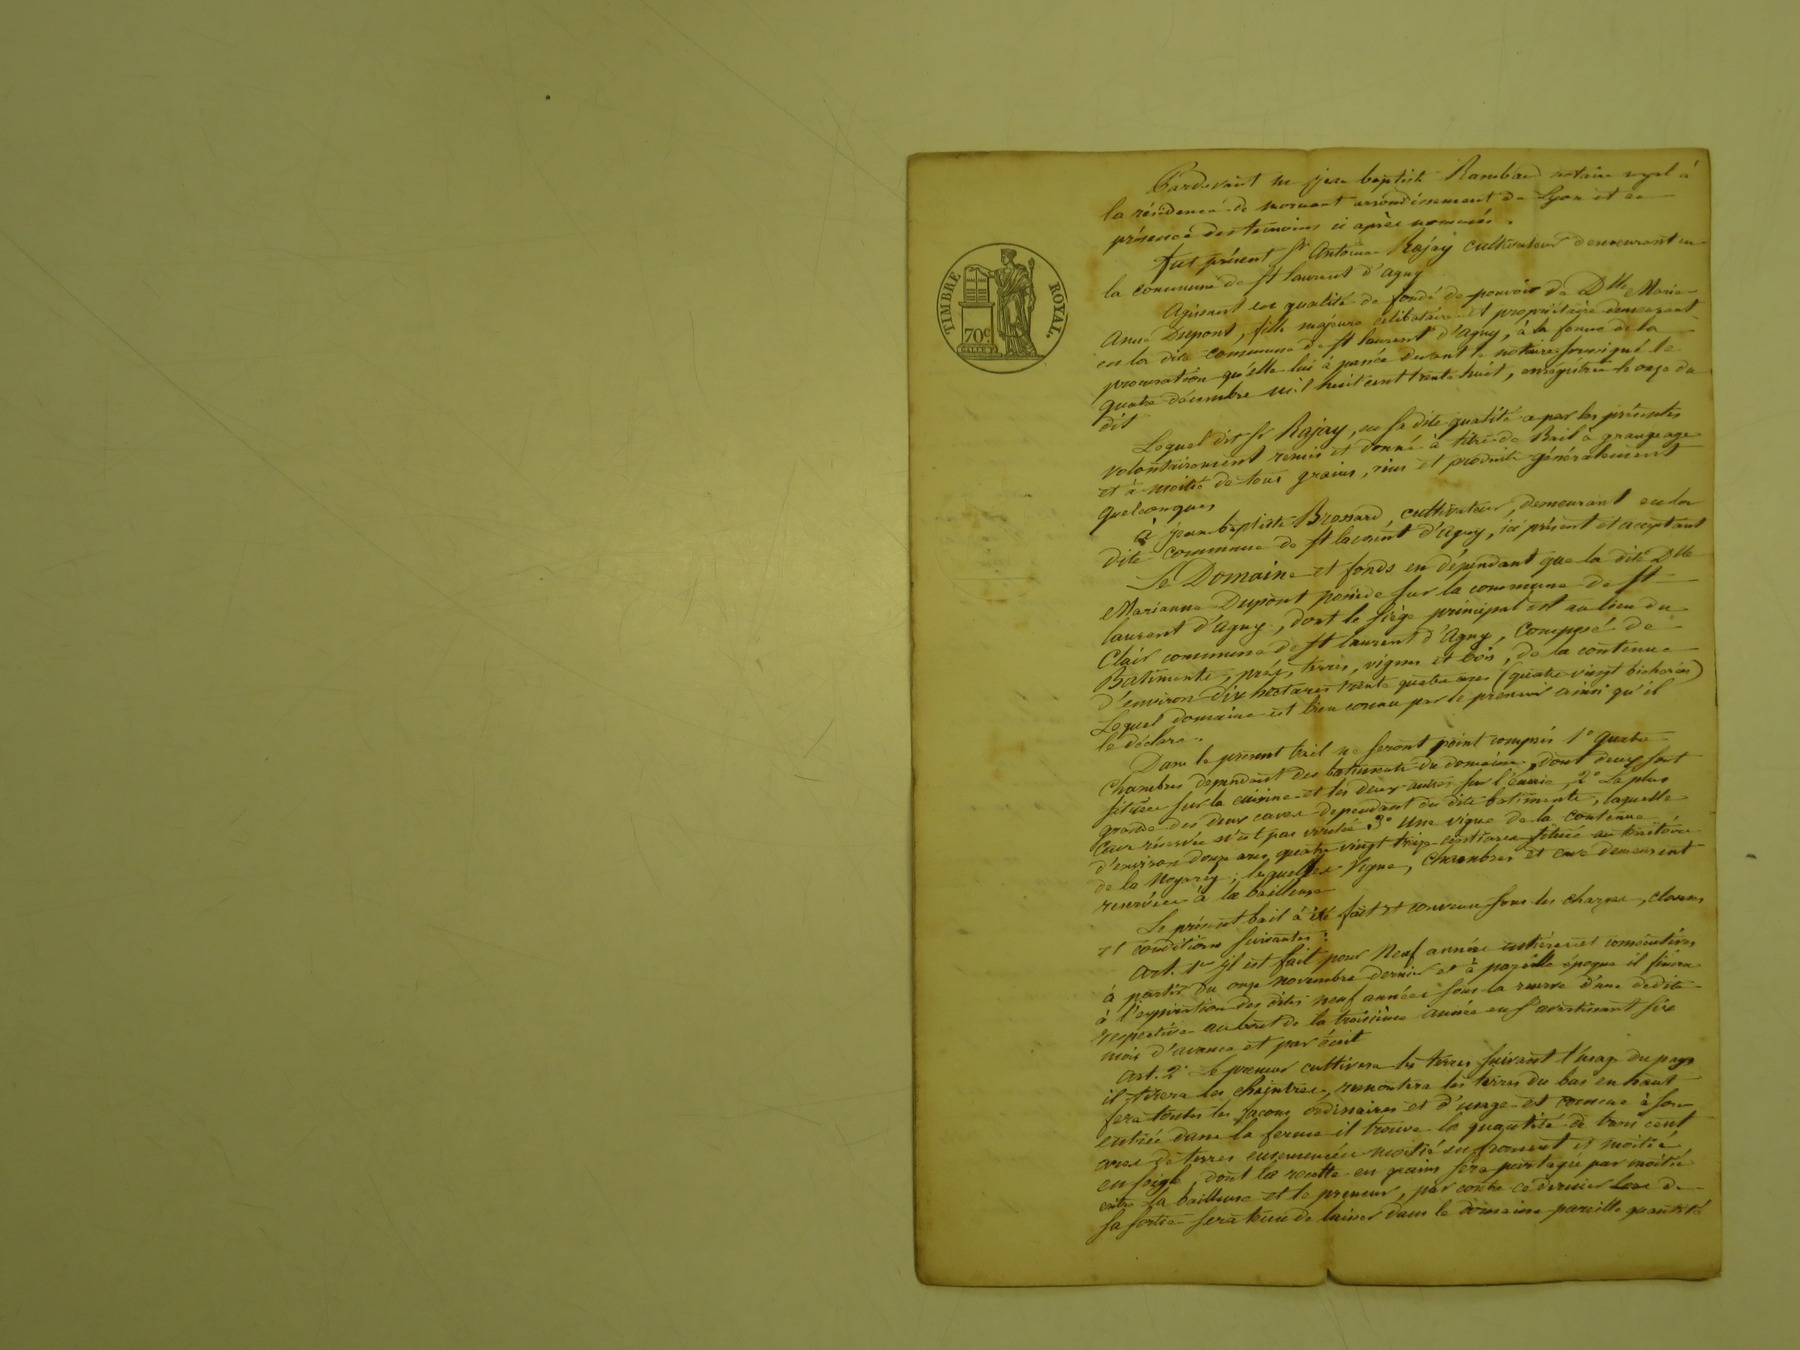 TIMBRE ROYAL.
70c.
Pardevant Me jean baptiste Rambaud notaire royal à
la résidence de mornant arrondissement de Lyon et en
présence des temoins ci après nommés.
fut présent sr Antoine Rajay cultivateur demeurant en
la commune de st laurent d'agny
Agissant en qualité de fondé de pouvoir de Dlle Marie
Anne Dupont, fille majeure célibataire et propriétaire demeurant
en la dite commune de st laurent d'agny, à la forme de la
procuration qu'elle lui à passée devant le notaire soussigné le
quatre décembre mil huit cent trente huit, enregistrée le onze du
dit
Lequel dit sr Rajay, en sa dite qualité a par les présentes
volontairement remis et donné à titre de Bail à grangeage
et à moitié de tous grains, vins et produits généralement
quelconques
à jean baptiste Brossard, cultivateur, demeurant en la
dite commune de st laurent d'agny, ici présent et acceptant
Le Domaine et fonds en dépendant que la dite Dlle
Marianne Dupont possède sur la commune de st
laurent d'agny, dont le siège principal est au lieu du
Clair commune de st laurent d'agny, composé de
Batiments, prés, terres, vignes et bois, de la contenue
d'environ dix hectares trente quatre ares (quatre vingt bicherées)
Lequel domaine est bien connu par le preneur ainsi qu'il
le déclare.
Dans le présent bail ne seront point compris 1° quatre
chambres dépendant des batiments du domaine, dont deux sont
situées sur la cuisine et les deux autres sur l'écurie, 2° La plus
grande des deux caves dépendant des dits batiments, laquelle
cave réservée n'est pas voutée 3° Une vigne de la contenue
d'environ douze ares quatre vingt treize centiares située au territoire
de la Noyeray; lesquelles Vigne, chambres et cave demeurent
reservées à la bailleuse
Le présent bail à été fait et convenu sous les charges, clauses
et conditions suivantes:
Art. 1er Il est fait pour Neuf années entières et consécutives
à partir du onze novembre dernier et à pareille époque il finira
à l'expiration des dites neuf années sous la reserve d'une dédite
respective au bout de la troisième année en s'avertissant six
mois d'avance et par écrit
Art. 2e Le preneur cultivera les terres suivant l'usage du pays
il tirera les cheintres, remontera les terres du bas en haut
fera toutes les façons ordinaires et d'usage et comme à son
entrée dans la ferme il trouve la quantité de trois cent
ares de terres ensemencées moitié en froment et moitié
en seigle, dont la recolte en grains sera partagée par moitié
entre la bailleuse et le preneur, par contre ce dernier lors de
sa sortie sera tenu de laisser dans le domaine pareille quantité